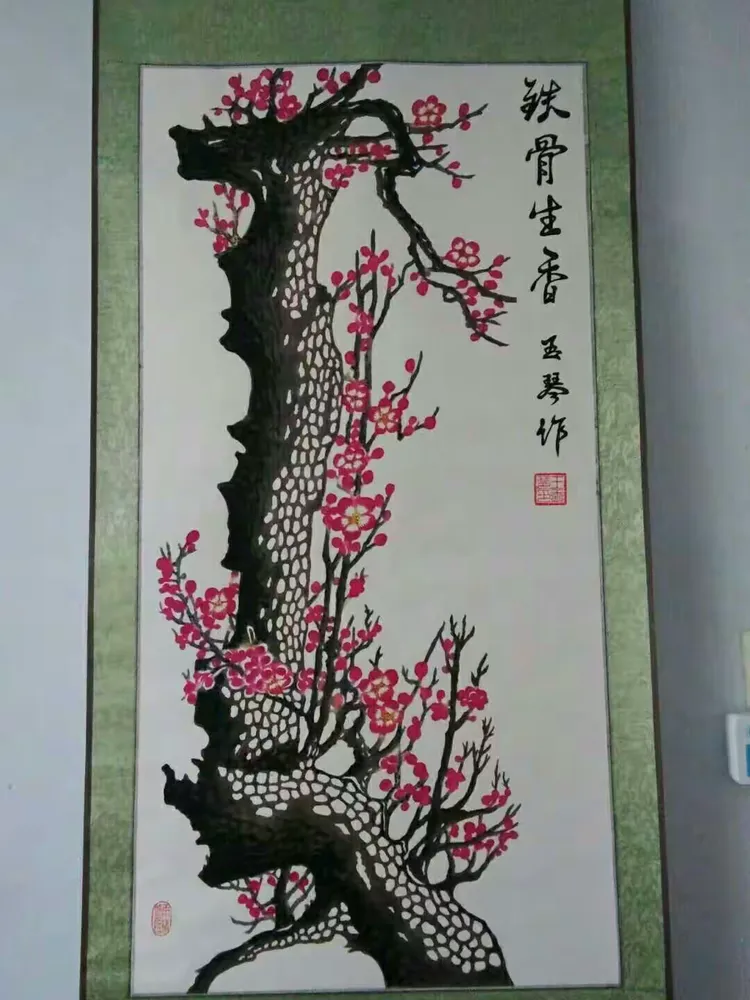 铁骨生香
玉琴作